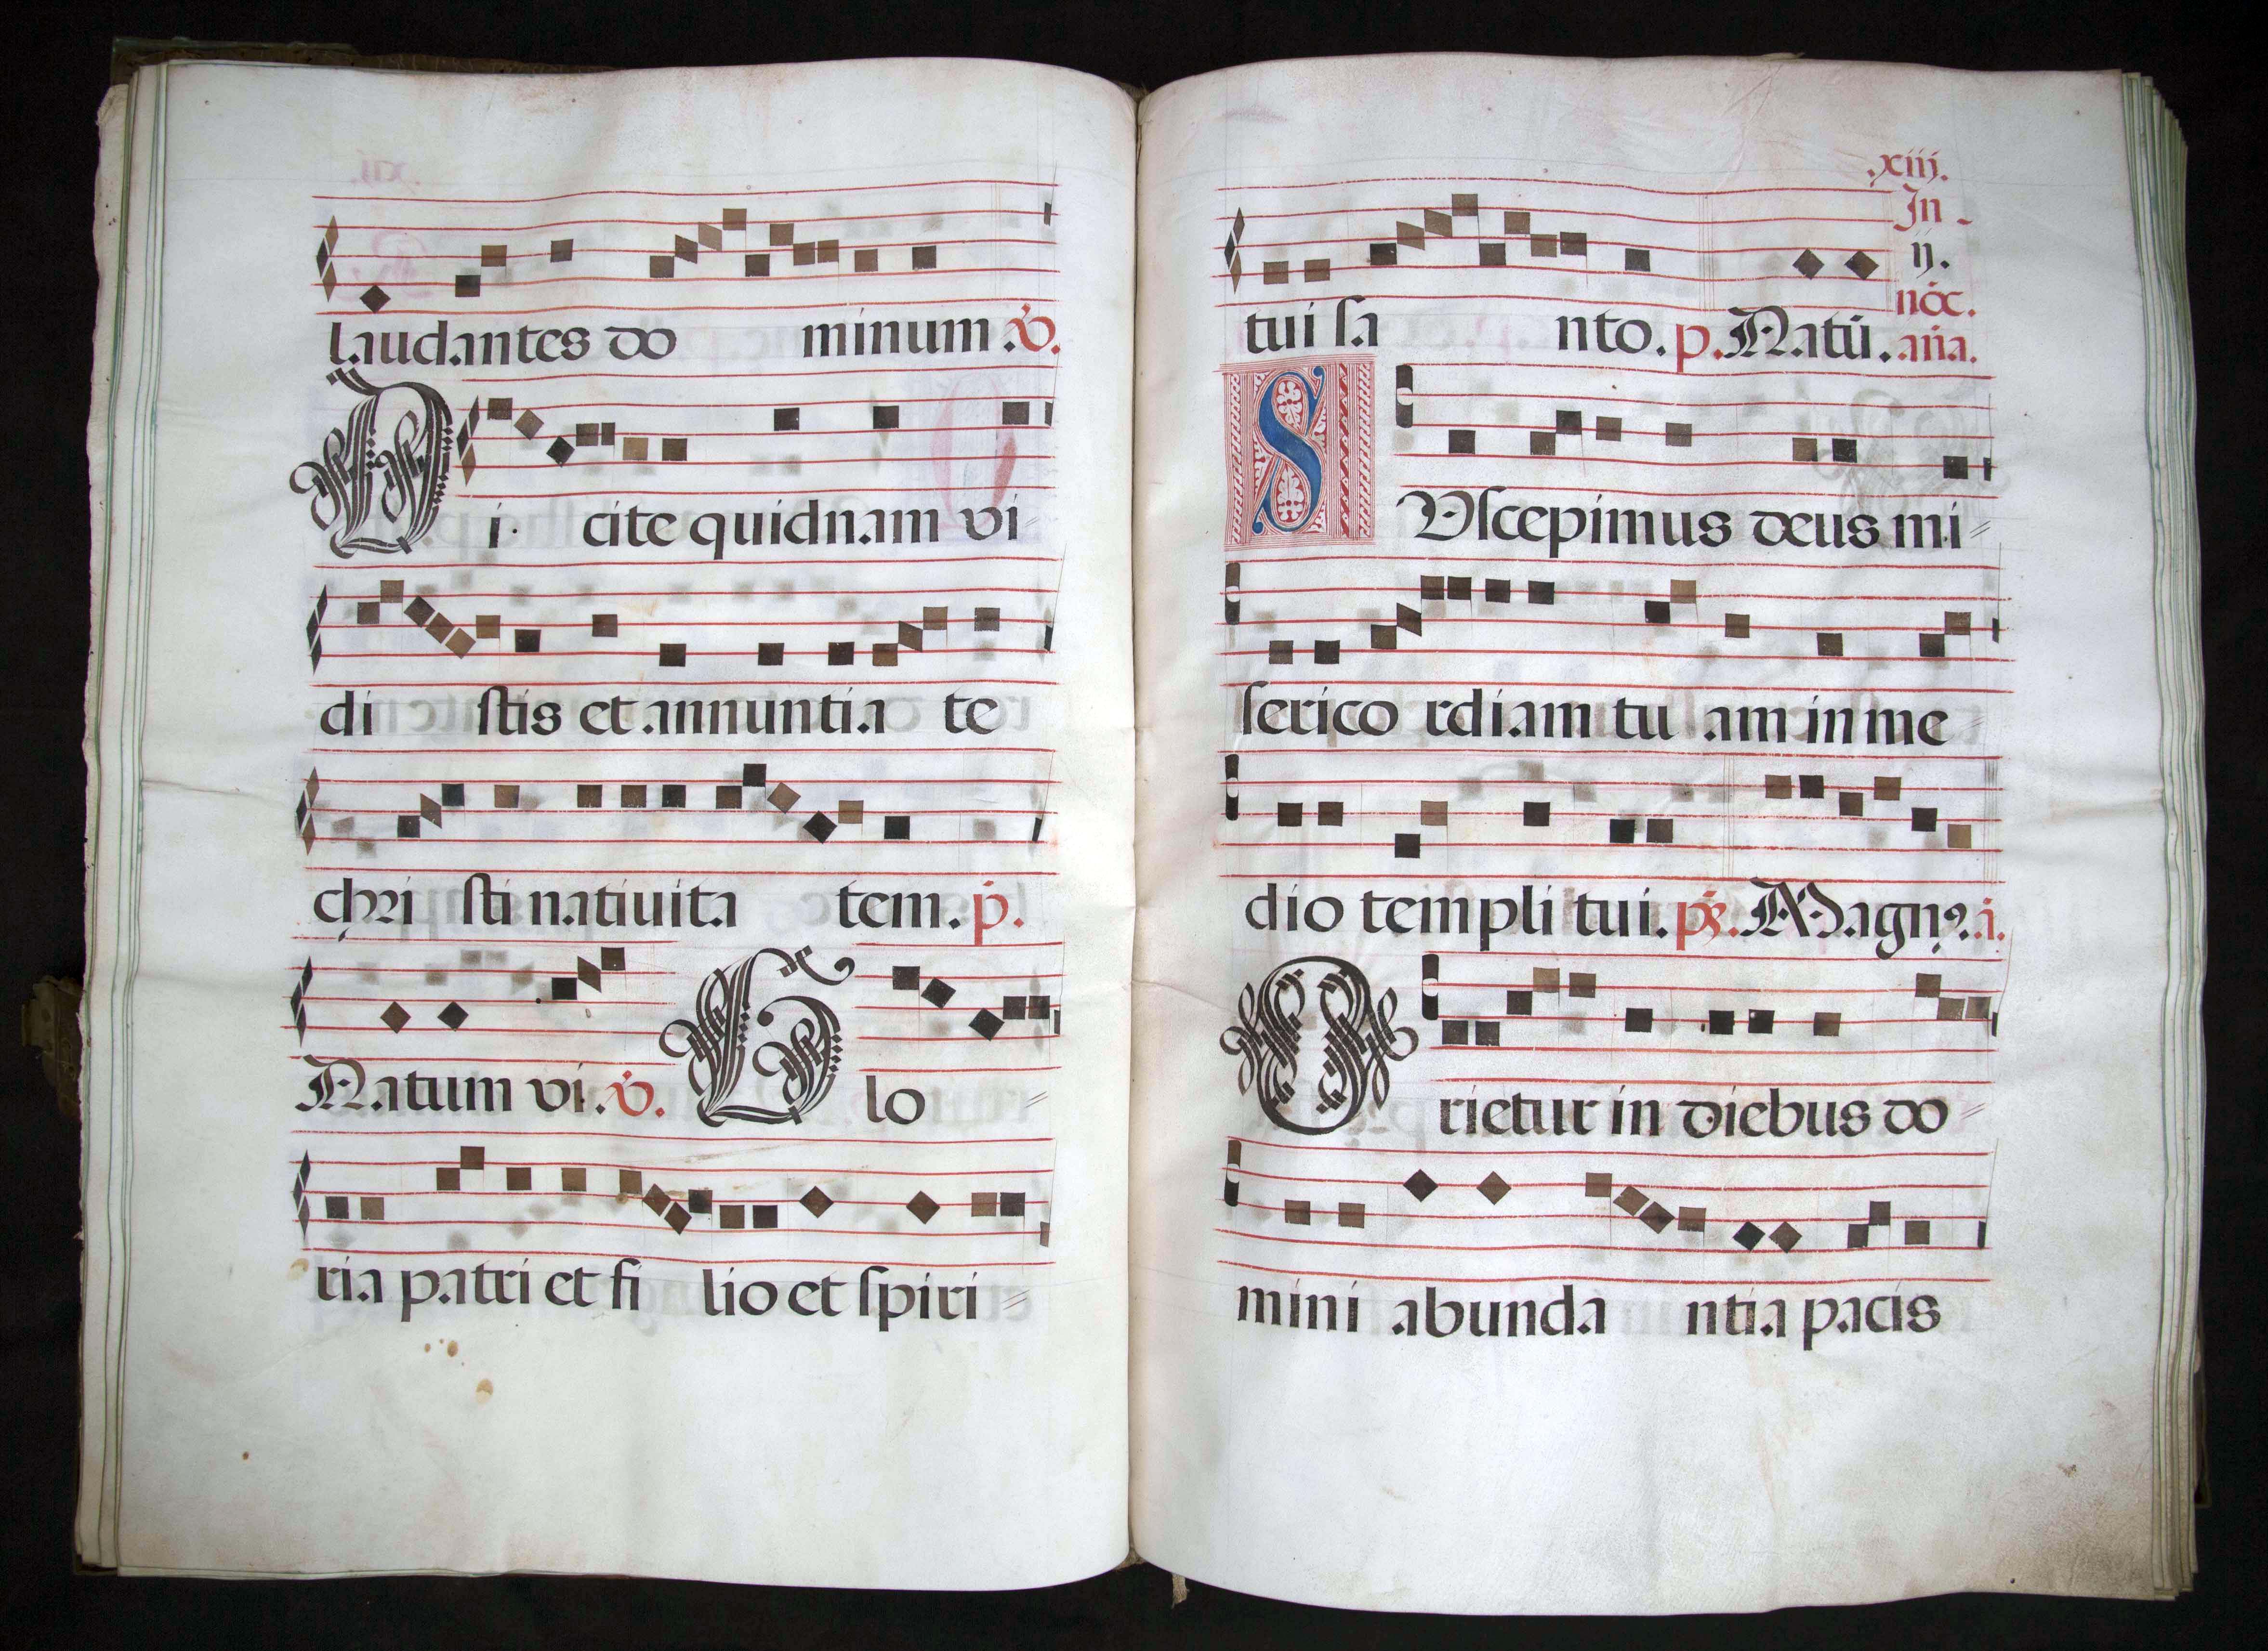 laudantes do minum. ℣.
Di. cite quidnam vi⹀
di stis et annuntia te
chri sti natiuita tem. p̄.
Natum vi. ℣. Glo
ria patri et fi lio et spiri⹀
.xiij.
In
ij.
noc.
tui sa nto. p. Natū. aña.
SVscepimus deus mi⹀
serico rdiam tu am in me⹀
dio templi tui. ps. Magnꝰ. a.
Orietur in diebus do⹀
mini abunda ntia pacis